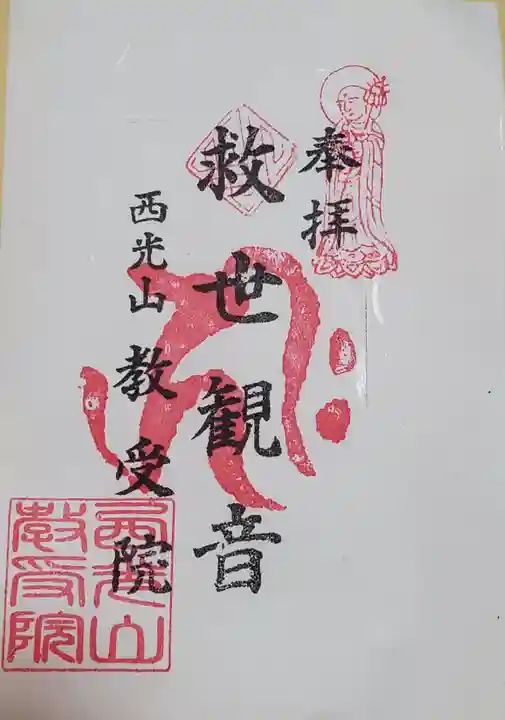 奉拝
救世観音
西光山 教受院
西光山
教受院